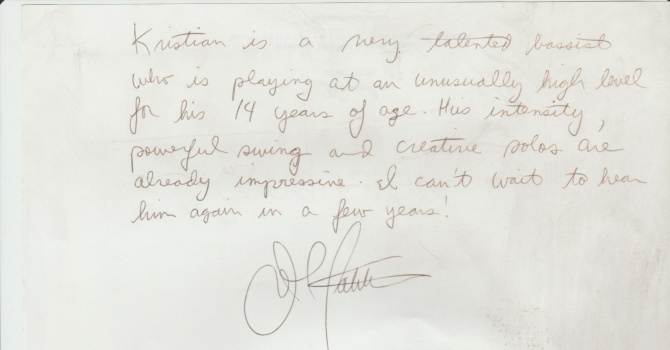 Kristian is a very talented bassist
who is playing at an unusually high level
for his 14 years of age. His intensity,
powerful swing and creative solos are
already impressive. I can't wait to hear
him again in a few years!